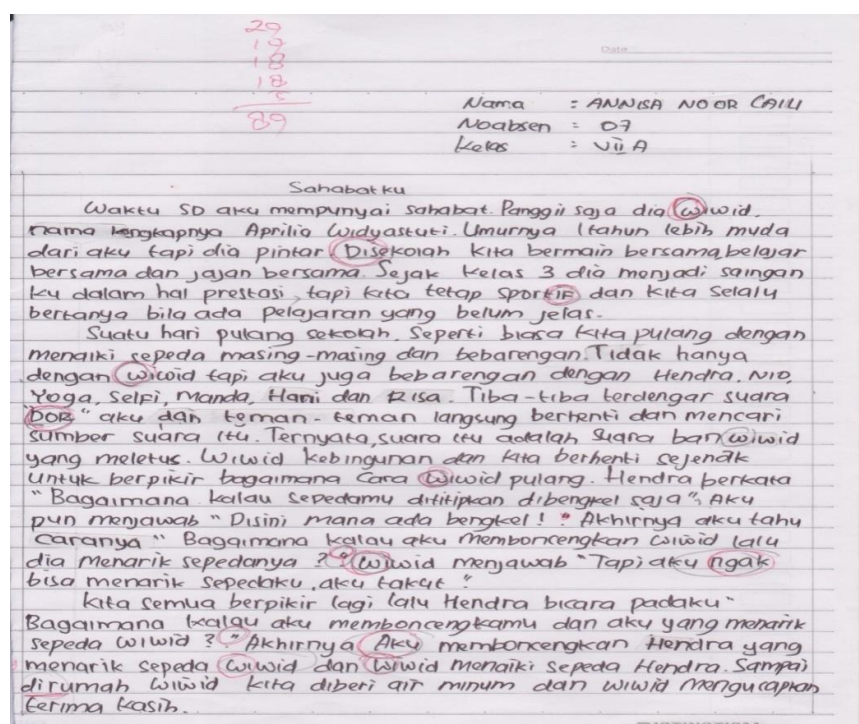 29
19
18
18
5
89
Date
Nama : ANNISA NOOR CAILI
Noabsen : 07
Kelas : VII A
Sahabatku
Waktu SD aku mempunyai sahabat. Panggil saja dia wiwid.
nama lengkapnya Aprilia Widyastuti. Umurnya 1 tahun lebih muda
dari aku tapi dia pintar. Disekolah kita bermain bersama, belajar
bersama dan jajan bersama. Sejak kelas 3 dia menjadi saingan
ku dalam hal prestasi, tapi kita tetap sportif dan kita selalu
bertanya bila ada pelajaran yang belum jelas.
Suatu hari pulang sekolah. Seperti biasa kita pulang dengan
menaiki sepeda masing-masing dan bebarengan. Tidak hanya
dengan wiwid tapi aku juga bebarengan dengan Hendra, NIO,
Yoga, Selpi, Manda, Hani dan Risa. Tiba-tiba terdengar suara
"DOR" aku dan teman-teman langsung berhenti dan mencari
sumber suara itu. Ternyata, suara itu adalah suara ban wiwid
yang meletus. Wiwid kebingunan dan kita berhenti sejenak
untuk berpikir bagaimana cara wiwid pulang. Hendra berkata
"Bagaimana kalau sepedamu dititipkan dibengkel saja", Aku
pun menjawab "Disini mana ada bengkel!" Akhirnya aku tahu
caranya "Bagaimana kalau aku memboncengkan wiwid lalu
dia menarik sepedanya ?" wiwid menjawab "Tapi aku ngak
bisa menarik sepedaku, aku takut"
Kita semua berpikir lagi lalu Hendra bicara padaku "
Bagaimana kalau aku memboncengkamu dan aku yang menarik
sepeda wiwid ?" Akhirnya Aku memboncengkan Hendra yang
menarik sepeda wiwid dan wiwid menaiki sepeda Hendra. Sampai
dirumah wiwid kita diberi air minum dan wiwid mengucapkan
terima kasih.